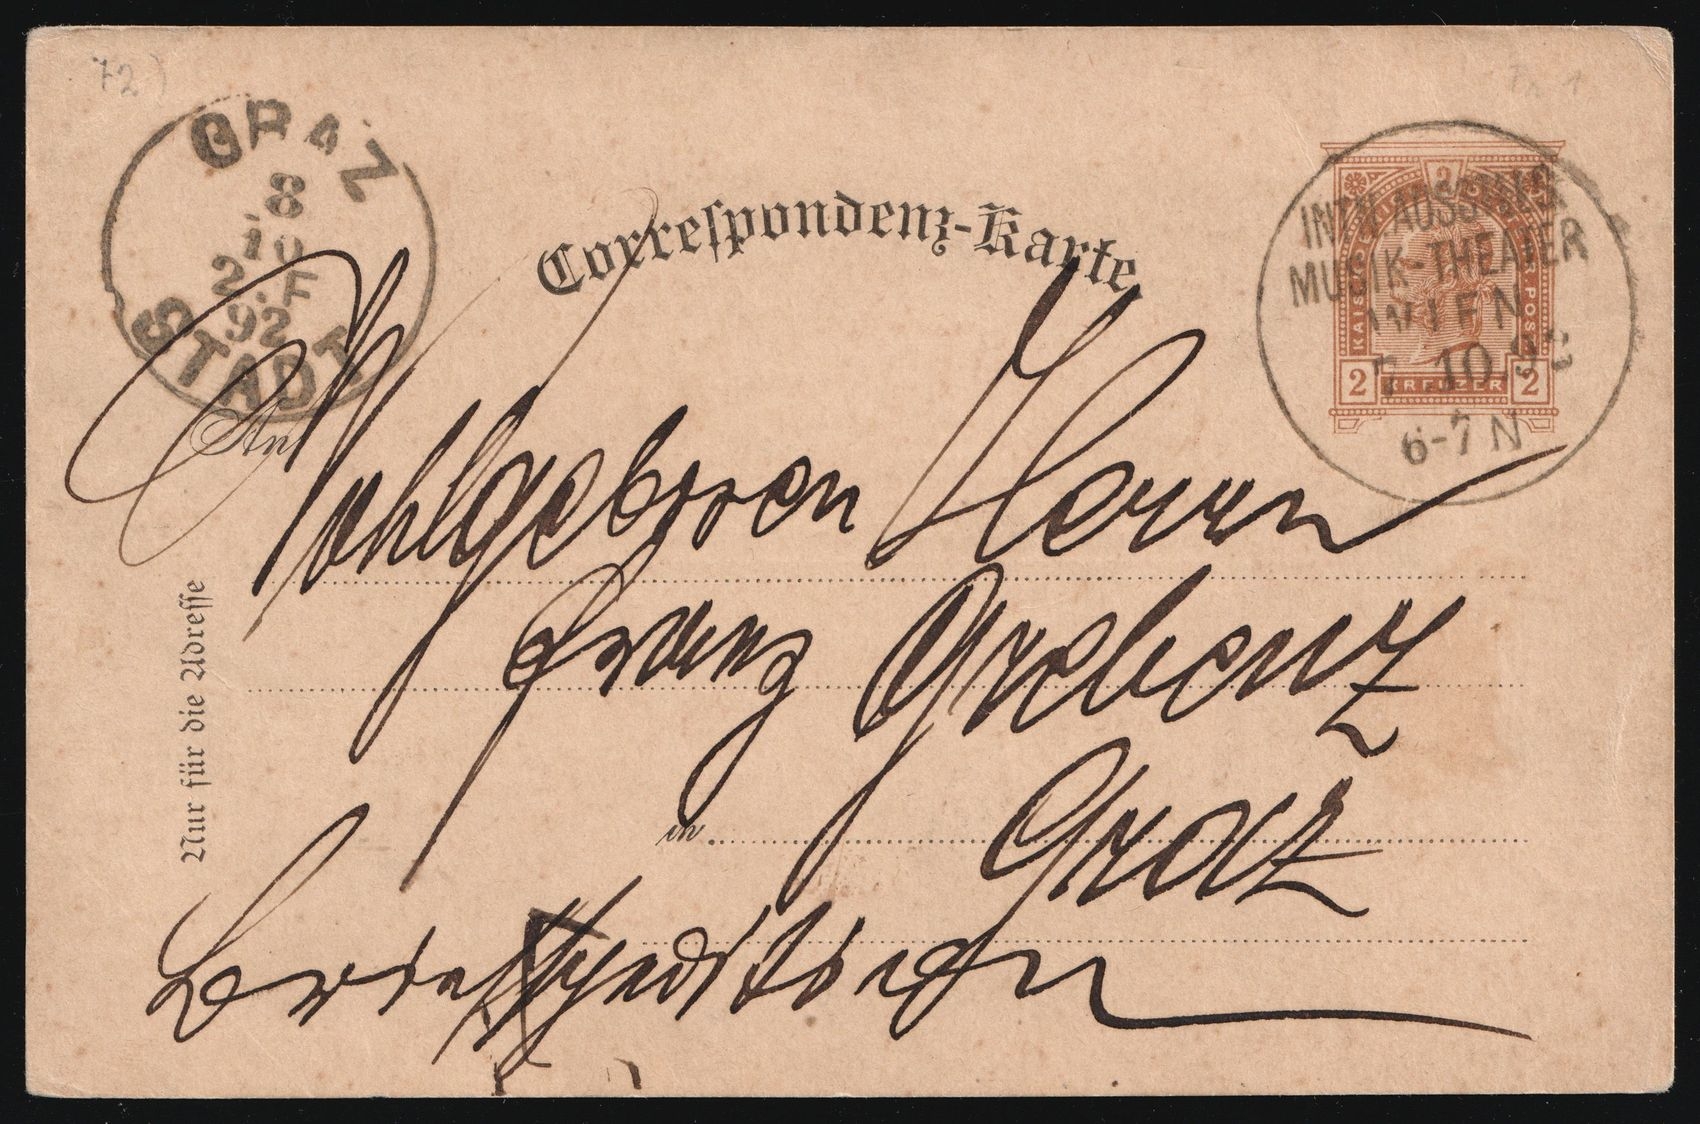 72)
GRAZ
8
10
2.F
92
STADT
Correspondenz-Karte.
2
KREUZER
2
INTN. AUSST. F.
MUSIK-THEATER
WIEN
7.10.92
6-7 N
An
Wohlgeboren Herrn
Franz Grebenz
in Graz
Briefexpedition
Nur für die Adresse